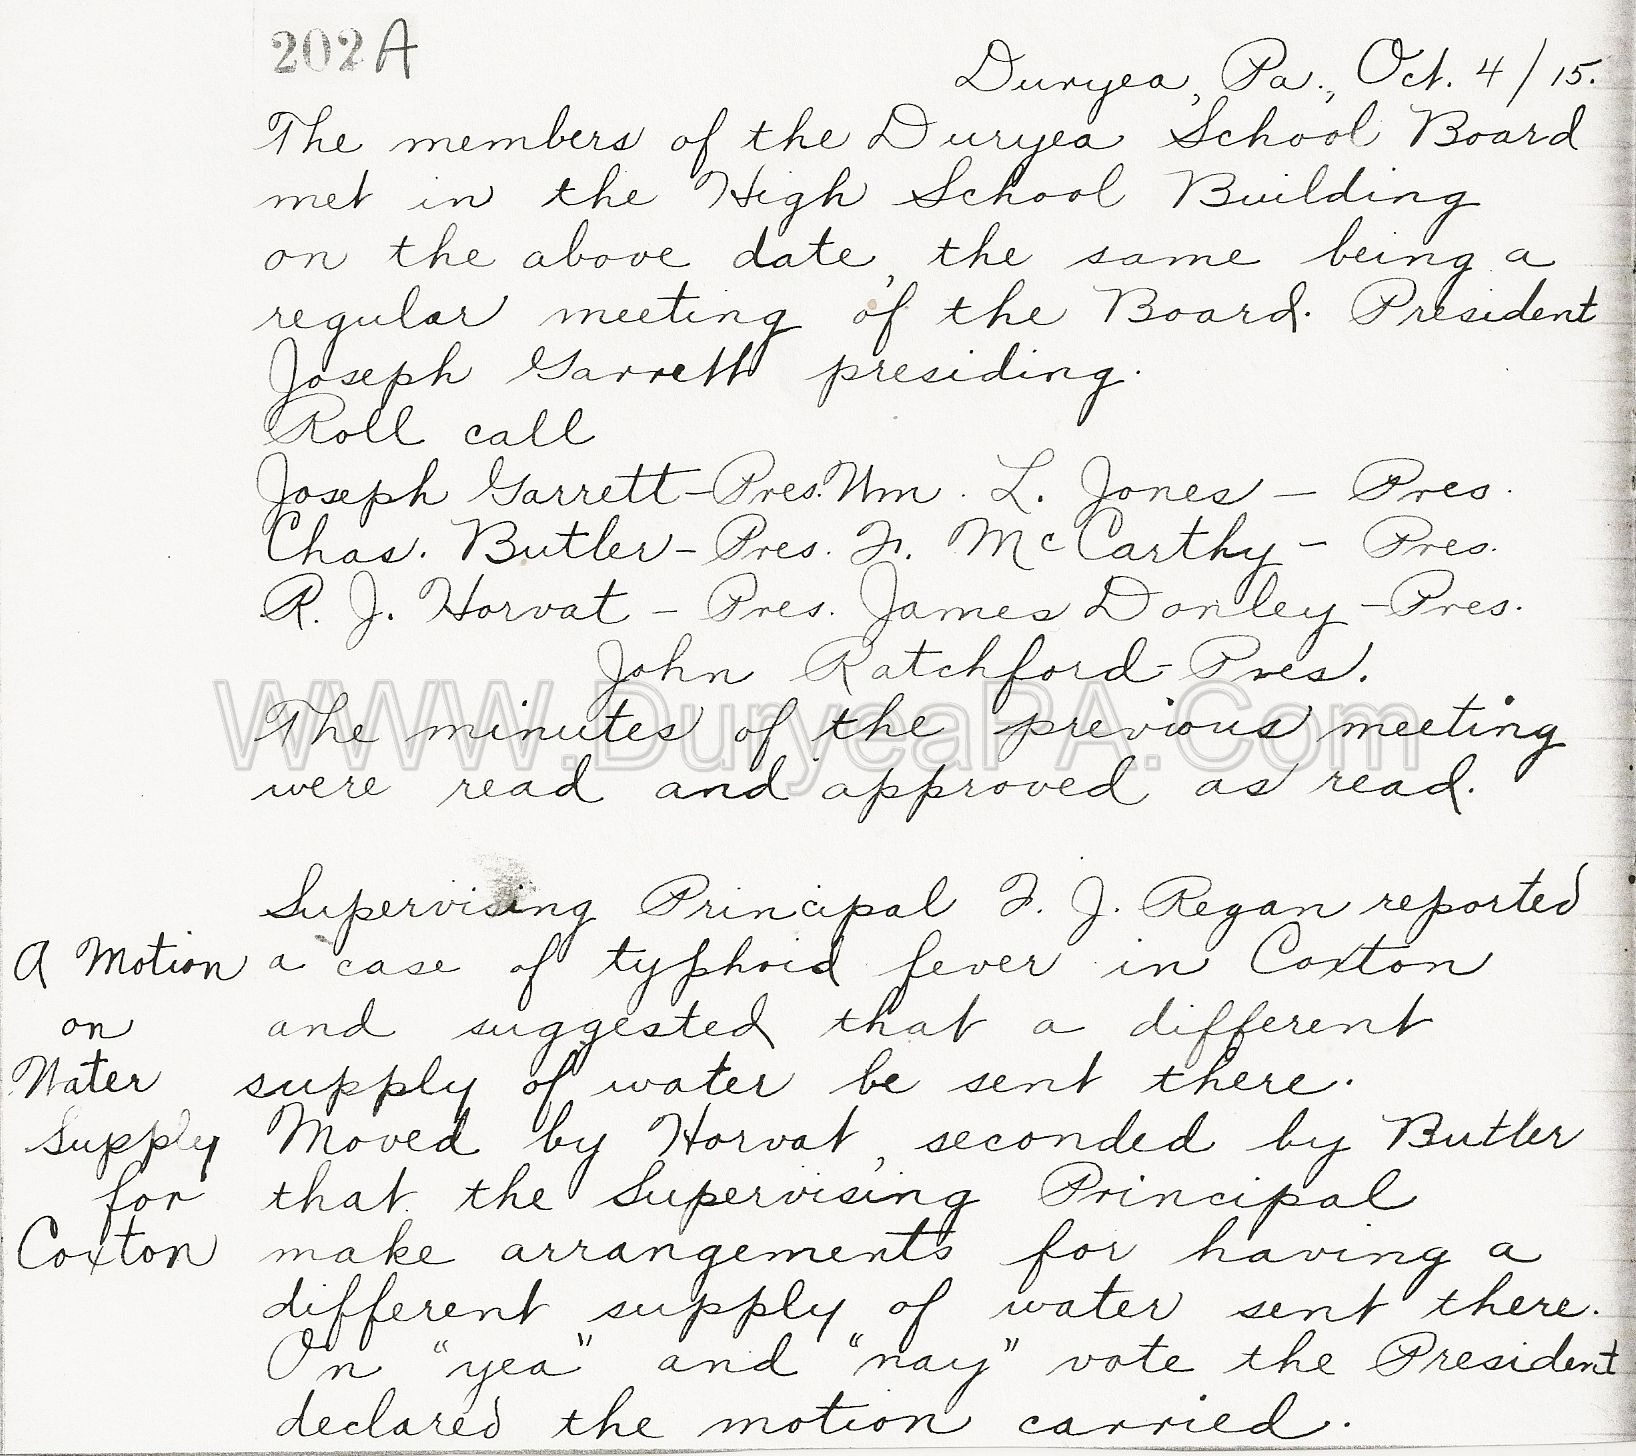 202A
Duryea, Pa., Oct. 4/15.
The members of the Duryea School Board
met in the High School Building
on the above date, the same being a
regular meeting of the Board. President
Joseph Garrett presiding.
Roll call
Joseph Garrett-Pres. Wm. L. Jones - Pres.
Chas. Butler-Pres. F. McCarthy - Pres.
R. J. Horvat - Pres. James Donley - Pres.
John Ratchford-Pres.
WWW.DuryeaPA.Com
The minutes of the previous meeting
were read and approved as read.
Supervising Principal F. J. Regan reported
a case of typhoid fever in Coxton
and suggested that a different
supply of water be sent there.
A Motion
on
Water
Supply
for
Coxton
Moved by Horvat, seconded by Butler
that the Supervising Principal
make arrangements for having a
different supply of water sent there.
On "yea" and "nay" vote the President
declared the motion carried.